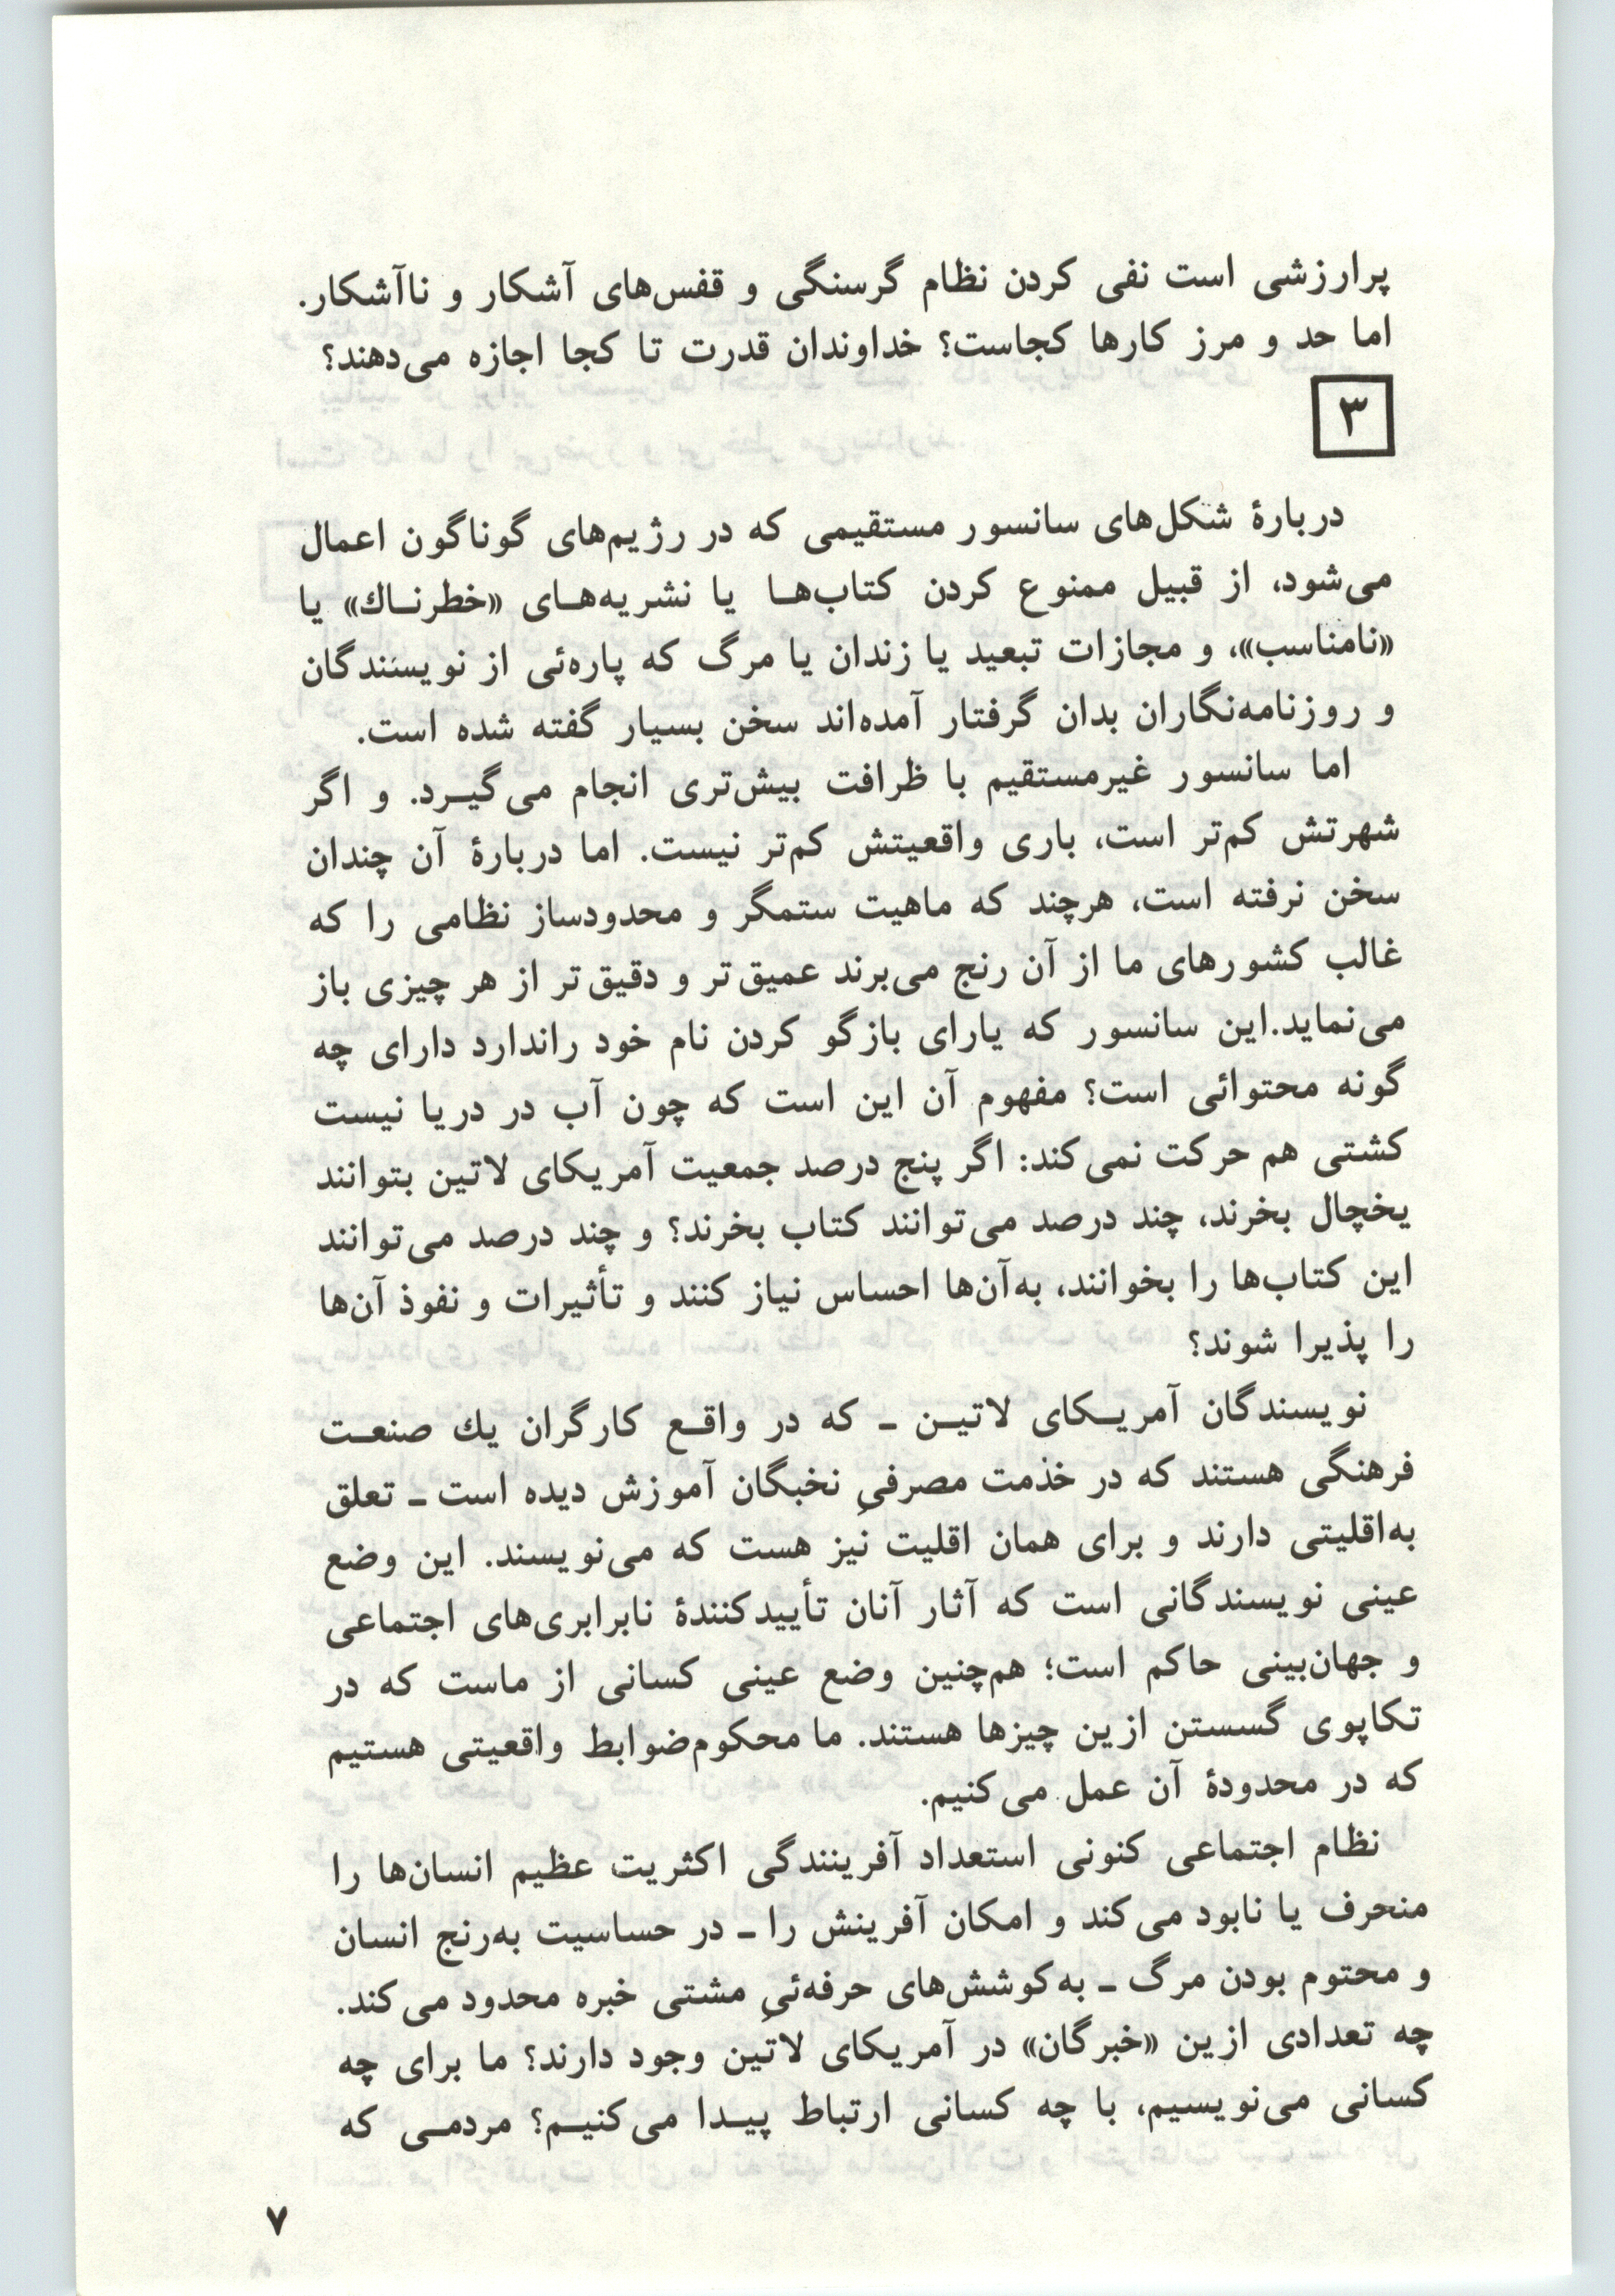 پرارزشی است نفی کردن نظام گرسنگی و قفس‌های آشکار و ناآشکار.
اما حد و مرز کارها کجاست؟ خداوندان قدرت تا کجا اجازه می‌دهند؟
۳
دربارهٔ شکل‌های سانسور مستقیمی که در رژیم‌های گوناگون اعمال
می‌شود، از قبیل ممنوع کردن کتاب‌هـا یا نشریه‌هـای «خطرنـاك» یا
«نامناسب»، و مجازات تبعید یا زندان یا مرگ که پاره‌ئی از نویسندگان
و روزنامه‌نگاران بدان گرفتار آمده‌اند سخن بسیار گفته شده است.
اما سانسور غیرمستقیم با ظرافت بیش‌تری انجام می‌گیـرد. و اگر
شهرتش کم‌تر است، باری واقعیتش کم‌تر نیست. اما دربارهٔ آن چندان
سخن نرفته است، هرچند که ماهیت ستمگر و محدودساز نظامی را که
غالب کشورهای ما از آن رنج می‌برند عمیق‌تر و دقیق‌تر از هر چیزی باز
می‌نماید.این سانسور که یارای بازگو کردن نام خود راندارد دارای چه
گونه محتوائی است؟ مفهوم آن این است که چون آب در دریا نیست
کشتی هم حرکت نمی‌کند: اگر پنج درصد جمعیت آمریکای لاتین بتوانند
یخچال بخرند، چند درصد می‌توانند کتاب بخرند؟ و چند درصد می‌توانند
این کتاب‌ها را بخوانند، به‌آن‌ها احساس نیاز کنند و تأثیرات و نفوذ آن‌ها
را پذیرا شوند؟
نویسندگان آمریـکای لاتیـن ـ که در واقـع کارگران یك صنعـت
فرهنگی هستند که در خدمت مصرفیِ نخبگان آموزش دیده است ـ تعلق
به‌اقلیتی دارند و برای همان اقلیت نیز هست که می‌نویسند. این وضع
عینی نویسندگانی است که آثار آنان تأییدکنندهٔ نابرابری‌های اجتماعی
و جهان‌بینی حاکم است؛ هم‌چنین وضع عینی کسانی از ماست که در
تکاپوی گسستن ازین چیزها هستند. ما محکوم‌ضوابط واقعیتی هستیم
که در محدودهٔ آن عمل می‌کنیم.
نظام اجتماعی کنونی استعداد آفرینندگی اکثریت عظیم انسان‌ها را
منحرف یا نابود می‌کند و امکان آفرینش را ـ در حساسیت به‌رنج انسان
و محتوم بودن مرگ ـ به‌کوشش‌های حرفه‌ئیِ مشتی خبره محدود می‌کند.
چه تعدادی ازین «خبرگان» در آمریکای لاتین وجود دارند؟ ما برای چه
کسانی می‌نویسیم، با چه کسانی ارتباط پیـدا می‌کنیـم؟ مردمـی که
۷